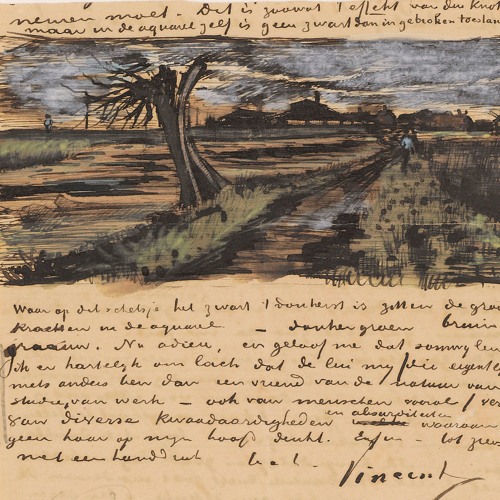 nemen moet. Dit is zoowat 't effekt van den knot
maar in de aquarel zelf is geen zwart dan in gebroken toestan
Waar op dit schetsje het zwart 't donkerst is zitten de groo
krachten in de aquarel — donkergroen bruin
graauw. Nu adieu, en geloof me dat somwylen
ik er hartelyk om lach dat de lui my /die eigently
niets anders ben dan een vriend van de natuur van
studie, van werk – ook van menschen vooral/ ver
van diverse kwaadaardigheden en absurditeiten waaraan
geen haar op myn hoofd denkt. Enfin – tot zien
met een handdruk t.à t.
Vincent